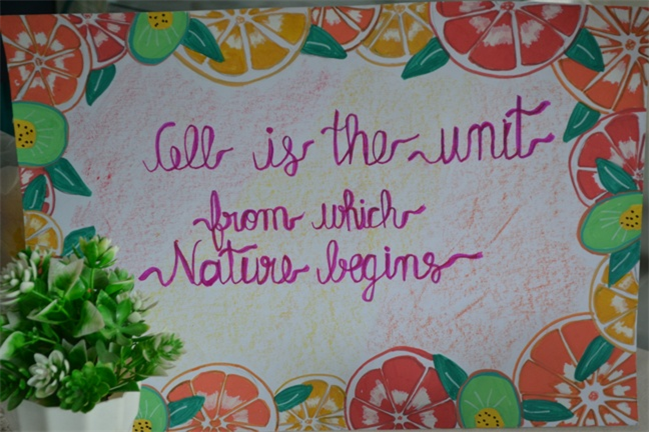 Cell is the unit
from which
Nature begins